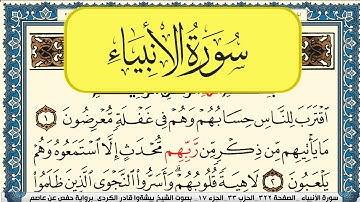 سُورَةُ الأَنبِيَاء
ٱقْتَرَبَ لِلنَّاسِ حِسَابُهُمْ وَهُمْ فِى غَفْلَةٍ مُّعْرِضُونَ ١
مَا يَأْتِيهِم مِّن ذِكْرٍ مِّن رَّبِّهِم مُّحْدَثٍ إِلَّا ٱسْتَمَعُوهُ وَهُمْ
يَلْعَبُونَ ٢ لَاهِيَةً قُلُوبُهُمْ وَأَسَرُّوا۟ ٱلنَّجْوَى ٱلَّذِينَ ظَلَمُوا۟
سورة الأنبياء . الصفحة ٣٢٢ . الحزب ٣٣ . الجزء ١٧ . بصوت الشيخ بيشةوا قادر الكردي . برواية حفص عن عاصم